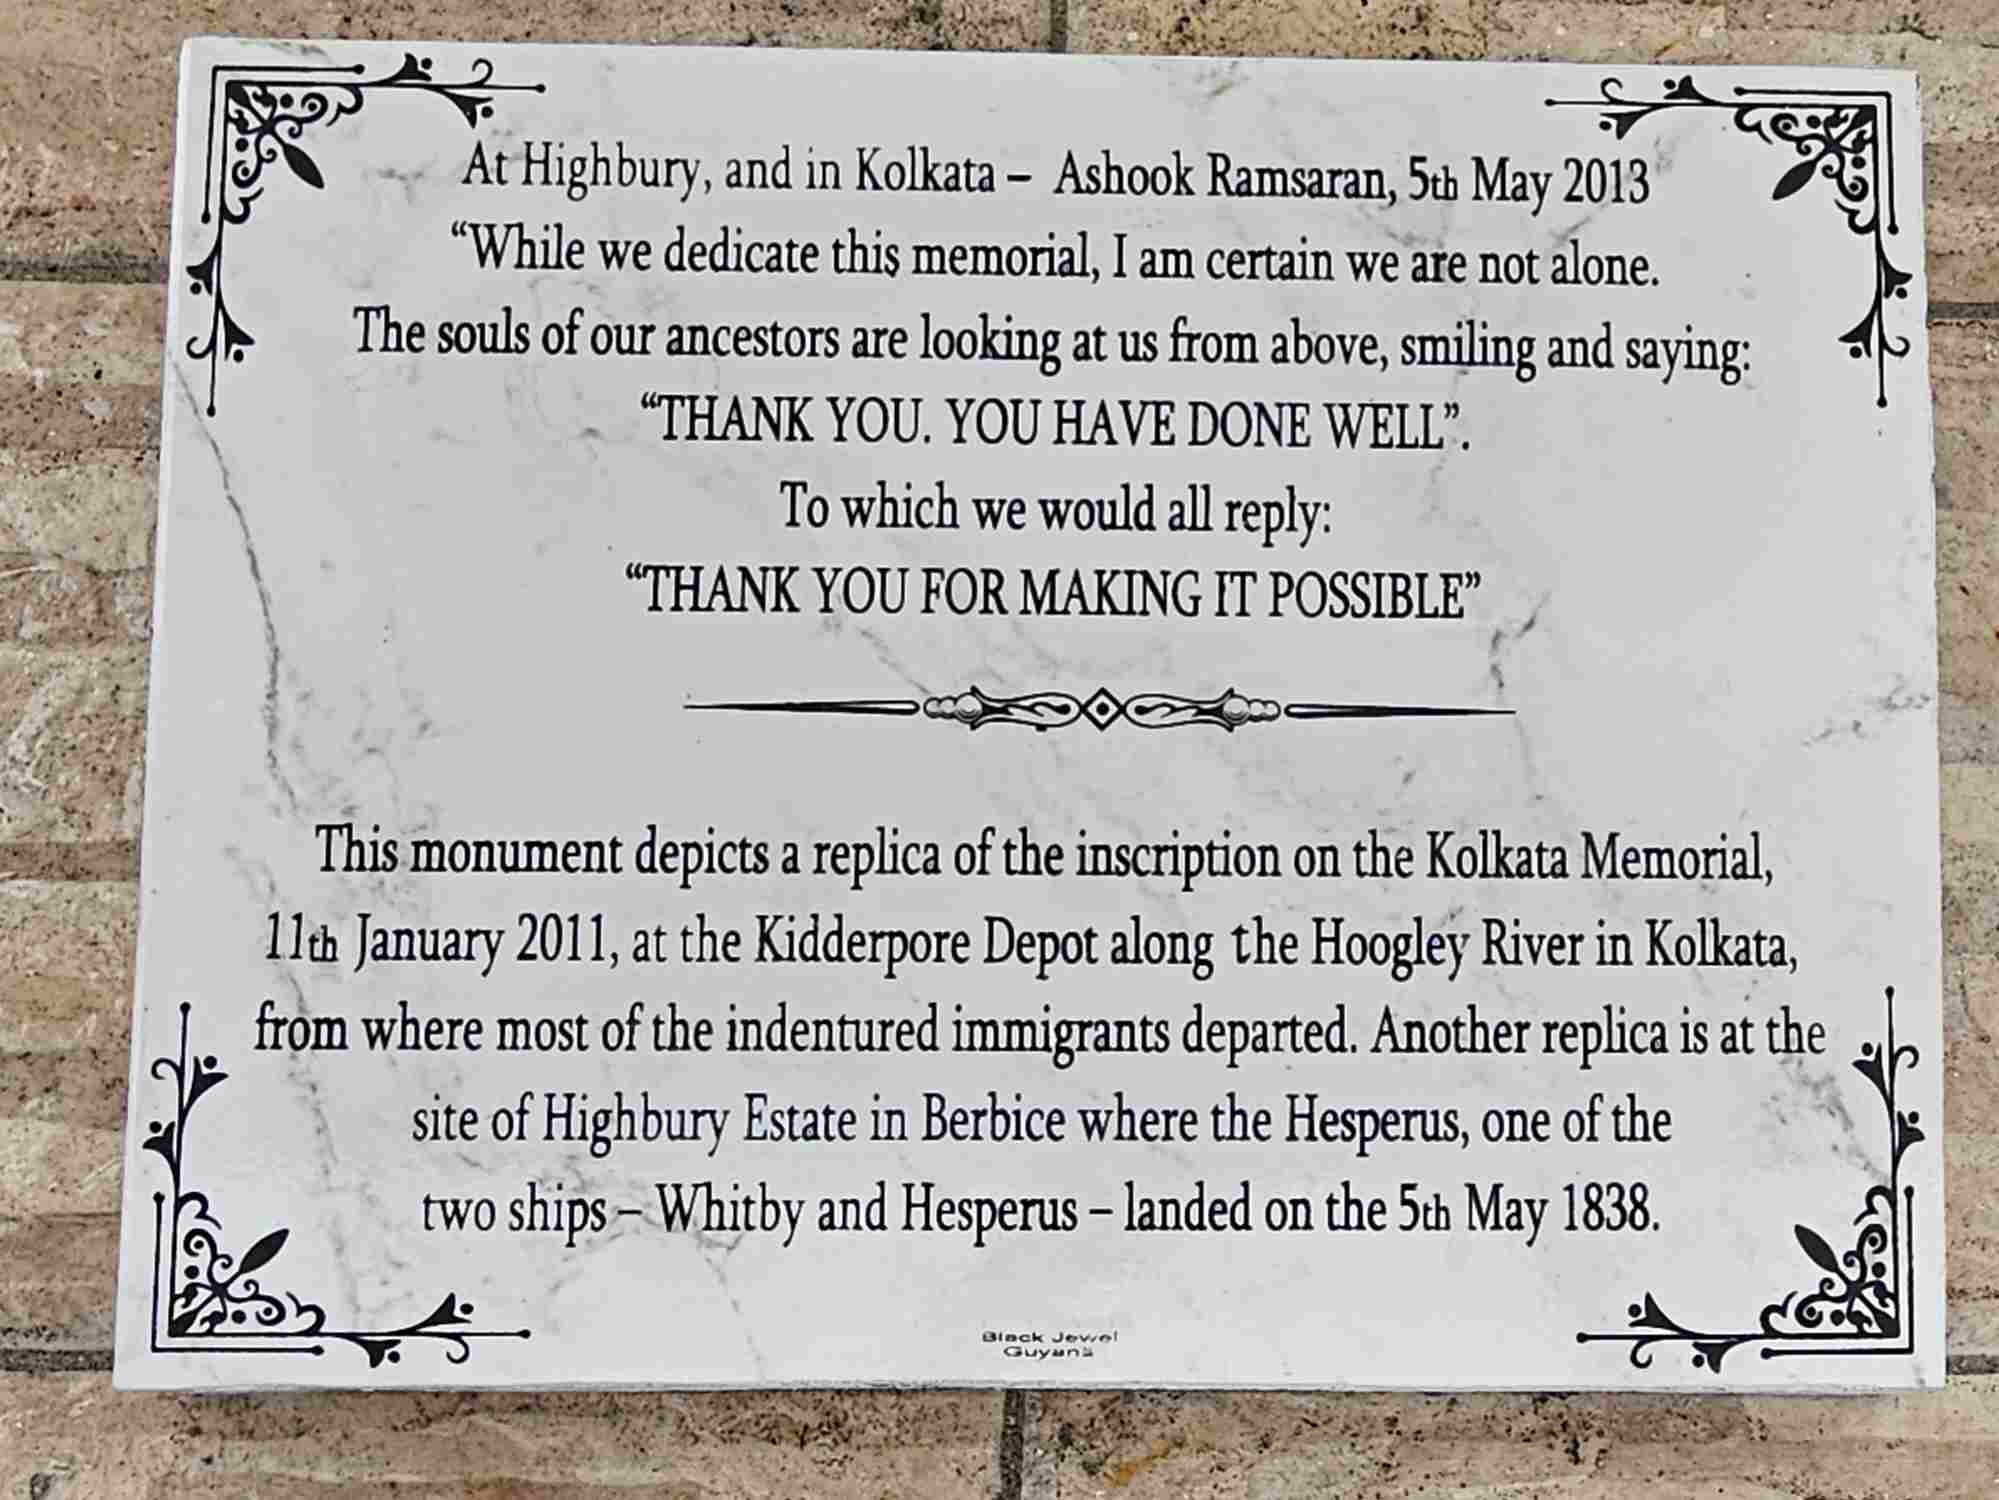 At Highbury, and in Kolkata – Ashook Ramsaran, 5th May 2013
“While we dedicate this memorial, I am certain we are not alone.
The souls of our ancestors are looking at us from above, smiling and saying:
“THANK YOU. YOU HAVE DONE WELL”.
To which we would all reply:
“THANK YOU FOR MAKING IT POSSIBLE”
This monument depicts a replica of the inscription on the Kolkata Memorial,
11th January 2011, at the Kidderpore Depot along the Hoogley River in Kolkata,
from where most of the indentured immigrants departed. Another replica is at the
site of Highbury Estate in Berbice where the Hesperus, one of the
two ships – Whitby and Hesperus – landed on the 5th May 1838.
Black Jewel
Guyana